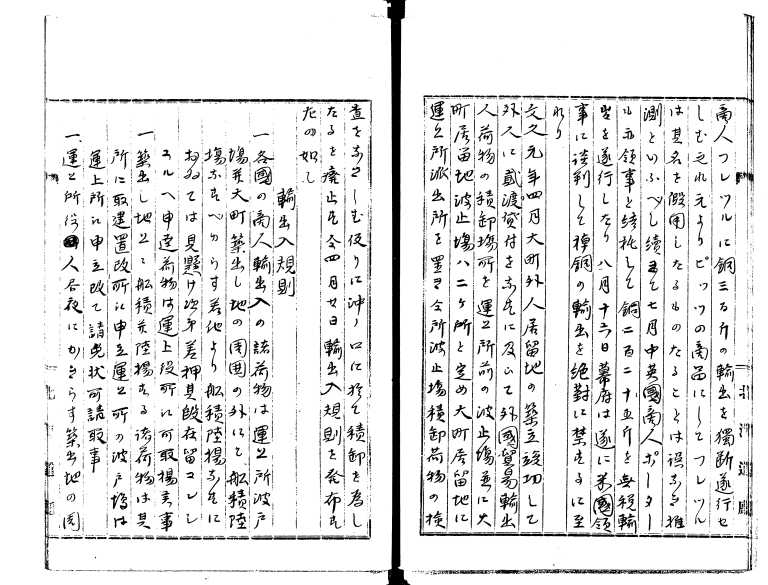 商人フレツルに銅三百斤の輸出を獨断遂行せ
しむ之れ元よりピツツの商品にしてフレツル
は其名を假用したるものたることは誤なき推
測といふべし續て七月中英國商人ポーター
は前領事と結託して銅二百二十五斤を無税輸
出を遂行したり八月十六日幕府は遂に米國領
事に談判して棹銅の輸出を絶對に禁ずるに至
れり
文久元年四月大町外人居留地の築立竣功して
外人に貳渡貸付をなすに及んで外國貿易輸出
人荷物の積卸場所を運上所前の波止場並に大
町居留地波止場八二ヶ所と定め大町居留地に
運上所派出所を置き今所波止場積卸荷物の検
査をなさしむ便りに沖ノ口に於て積卸を為し
たるを廃止し今四月廿日輸出入規則を発布す
左の如し
輸出入規則
一 各國の商人輸出入の諸荷物は運上所波戸
場并大町築出し地の周圍の外にて船積陸
揚なすべからす若他より船積陸揚なすに
おゐては見懸け次第差押其段在留コンシ
ユルへ申達荷物は運上役所に可取揚事
一 築出し地にて船積并陸揚する諸荷物は其
所に取建置改所に申立運上所の波戸場は
運上所に申立改て請免状可請取事
一 運上所役人昼夜にかきらす築出地の周